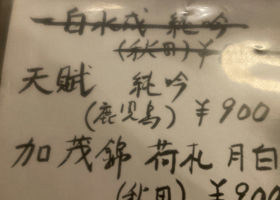 白水成 純吟
(秋田) ¥
天賦 純吟
(鹿児島) ¥900
加茂錦 荷札 月白
(秋田) ¥900